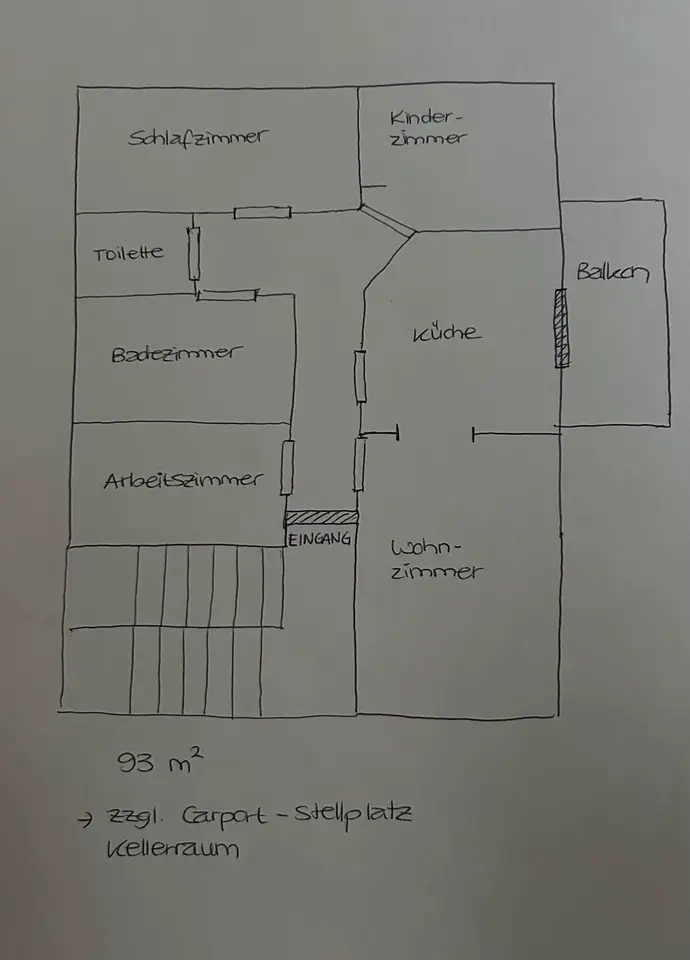 Schlafzimmer
Kinder-
zimmer
Toilette
Balkon
Küche
Badezimmer
Arbeitszimmer
EINGANG
Wohn-
zimmer
93 m²
→ zzgl. Carport - Stellplatz
Kellerraum